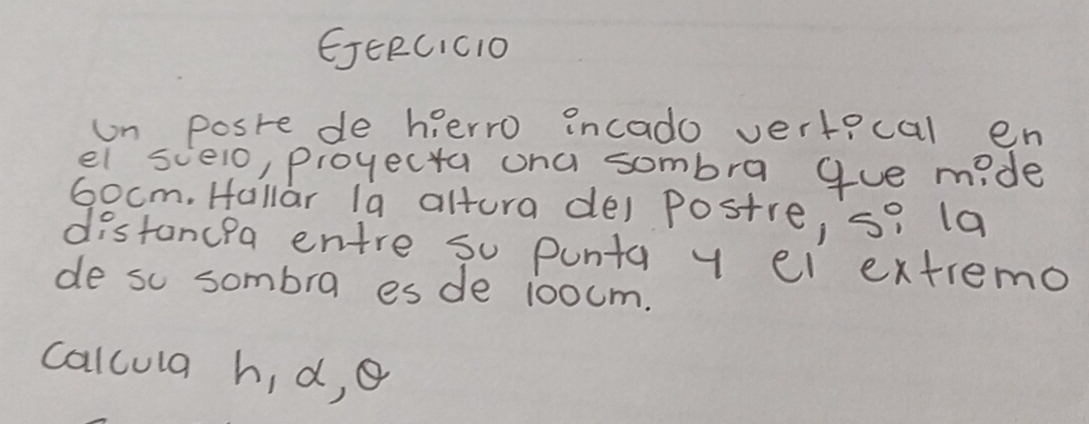 EJERCICIO
un poste de hierro incado vertical en
el suelo, proyecta una sombra que mide
60cm. Hallar la altura del postre, si la
distancia entre su punta y el extremo
de su sombra es de 100cm.
Calcula h, α, θ